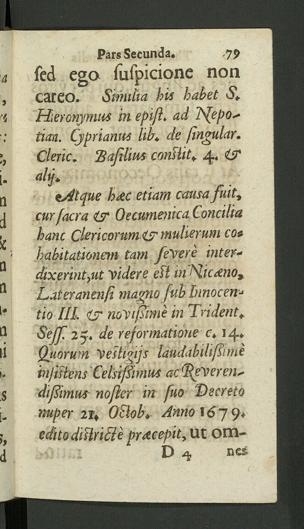 Pars Secunda. 79
sed ego suspicione non
careo. Similia his habet S.
Hieronymus in epist. ad Nepo-
tian. Cyprianus lib. de singular.
Cleric. Basilius constit. 4. &
alij.
Atque hæc etiam causa fuit,
cur sacra & Oecumenica Concilia
hanc Clericorum & mulierum co-
habitationem tam severè inter-
dixerint, ut videre est in Nicæno,
Lateranensi magno sub Innocen-
tio III. & novissimè in Trident.
Sess. 25. de reformatione c. 14.
Quorum vestigijs laudabilissimè
insistens Celsissimus ac Reveren-
dissimus noster in suo Decreto
nuper 21. Octob. Anno 1679.
edito districtè præcepit, ut om-
D 4 nes